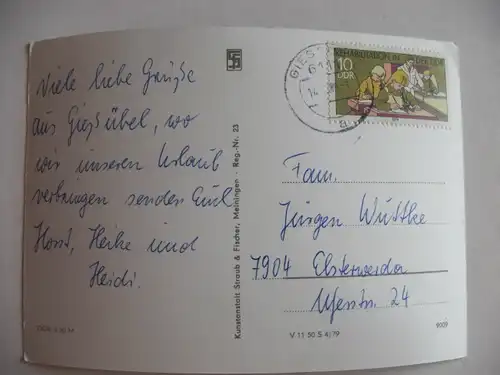 Viele liebe Grüße
aus Gießübel, wo
wir unseren Urlaub
verbringen senden Euch
Horst, Heike und
Heidi.
Kunstanstalt Straub & Fischer, Meiningen · Reg.-Nr. 23
GIES
REHABILITATION IN DER DDR
10
DDR
Fam.
Jürgen Wuttke
7904 Elsterwerda
Uferstr. 24
V 11 50 S 4/79
9009